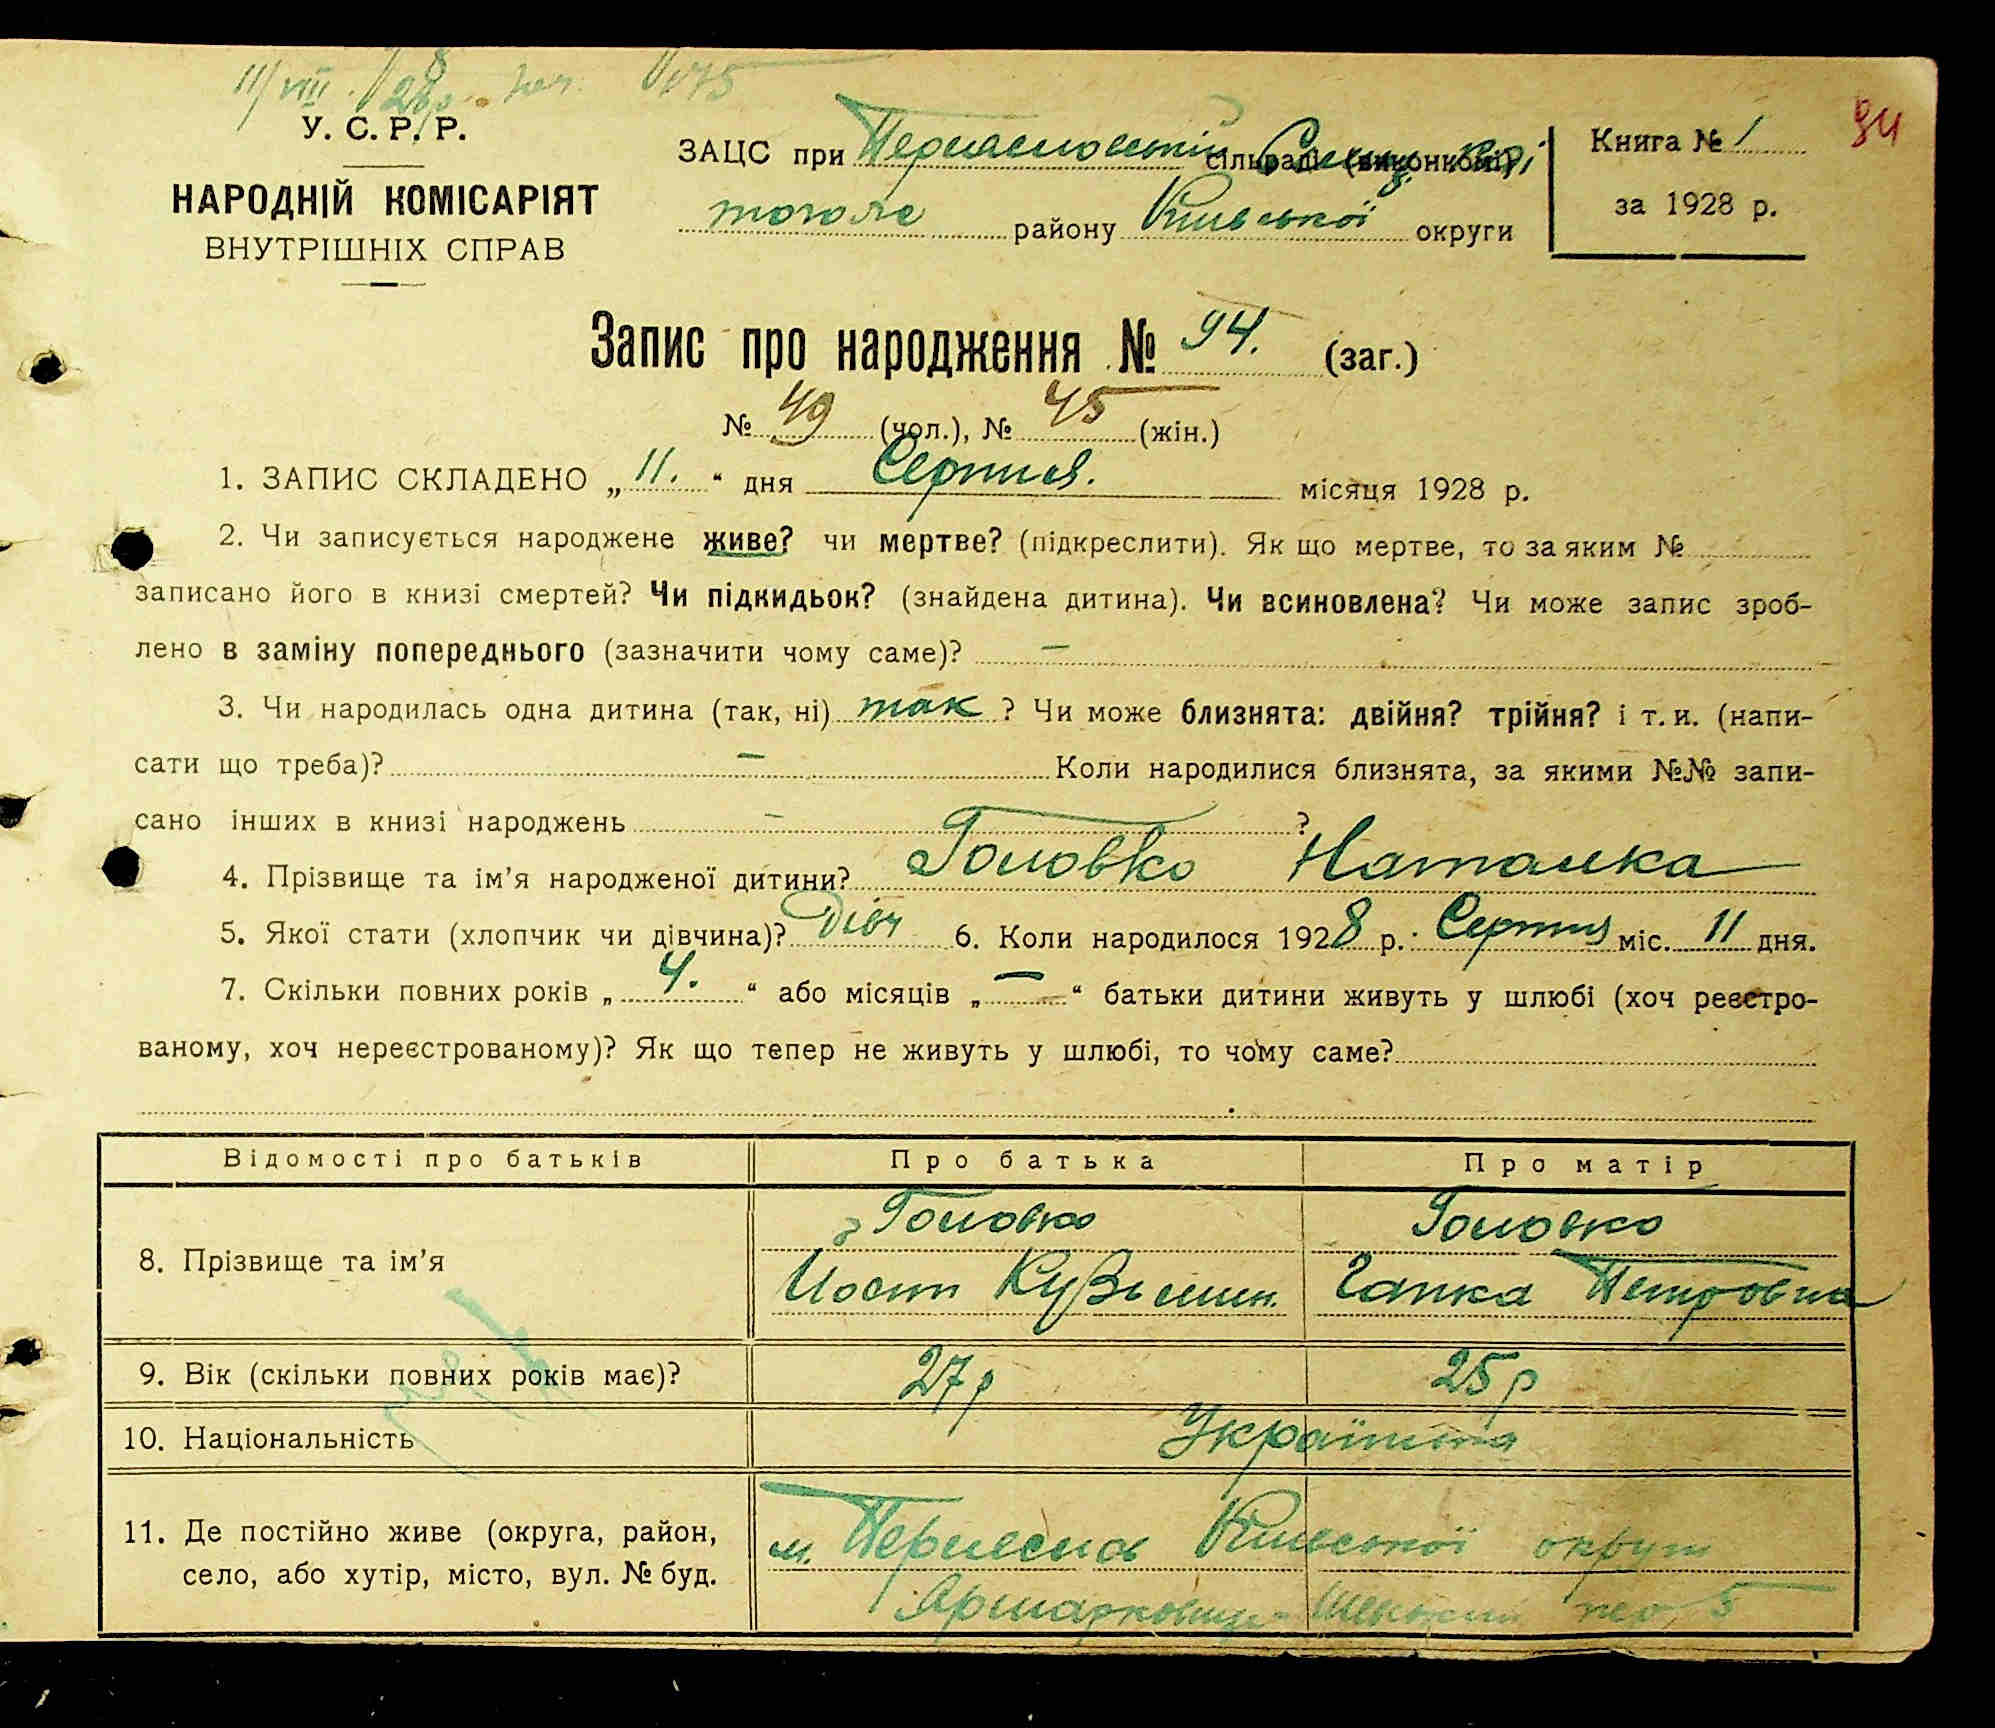 11/VIII
У. С. Р. Р.
НАРОДНІЙ КОМІСАРІЯТ
ВНУТРІШНІХ СПРАВ
ЗАЦС при сільраді (виконкомі)
того ж району Київської округи
Книга № 1
за 1928 р.
94
Запис про народження № 94. (заг.)
№ 49 (чол.), № 45 (жін.)
1. ЗАПИС СКЛАДЕНО „11.“ дня Серпня. місяця 1928 р.
2. Чи записується народжене живе? чи мертве? (підкреслити). Як що мертве, то за яким №
записано його в книзі смертей? Чи підкидьок? (знайдена дитина). Чи всиновлена? Чи може запис зроб-
лено в заміну попереднього (зазначити чому саме)? –
3. Чи народилась одна дитина (так, ні) так ? Чи може близнята: двійня? трійня? і т. и. (напи-
сати що треба)? – Коли народилися близнята, за якими №№ запи-
сано інших в книзі народжень – ?
4. Прізвище та ім’я народженої дитини? Головко Наталка
5. Якої стати (хлопчик чи дівчина)? Дівч 6. Коли народилося 1928 р. Серпня міс. 11 дня.
7. Скільки повних років „ 4. “ або місяців „ – “ батьки дитини живуть у шлюбі (хоч реєстро-
ваному, хоч нереєстрованому)? Як що тепер не живуть у шлюбі, то чому саме?
Відомості про батьків Про батька Про матір
8. Прізвище та ім’я
Головко Головко
Иосип Кузьмин. Гапка Петровна
9. Вік (скільки повних років має)? 27 р 25 р
10. Національність Україн
11. Де постійно живе (округа, район,
село, або хутір, місто, вул. № буд.
м. Переяслов Київської округи
5